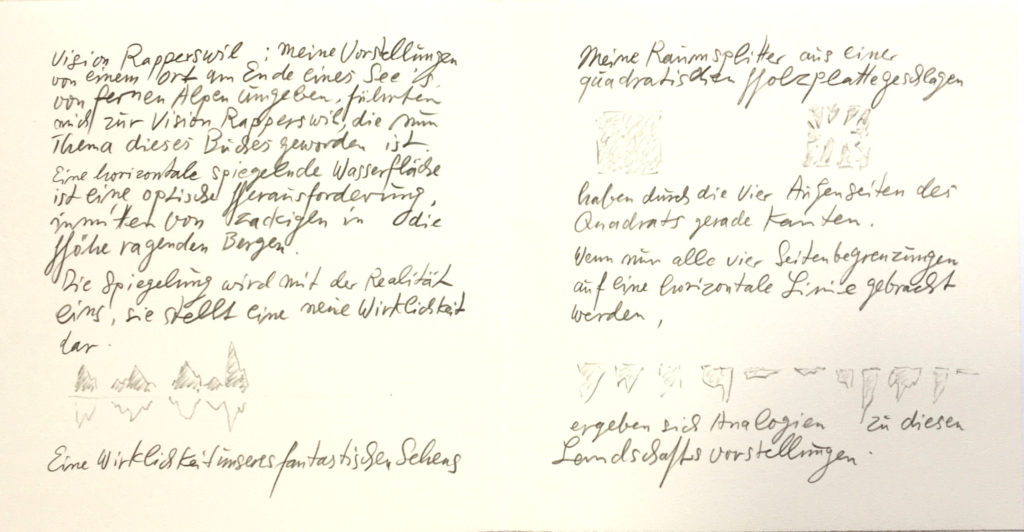 Vision Rapperswil : meine Vorstellungen
von einem Ort am Ende eines See's,
von fernen Alpen umgeben, führten
mich zur Vision Rapperswil, die nun
Thema dieses Buches geworden ist.
Eine horizontale spiegelnde Wasserfläche
ist eine optische Herausforderung,
inmitten von zackigen in die
Höhe ragenden Bergen.
Die Spiegelung wird mit der Realität
eins, sie stellt eine neue Wirklichkeit
dar.
Eine Wirklichkeit unseres fantastischen Sehens
Meine Raumsplitter aus einer
quadratischen Holzplatte geschlagen
haben durch die vier Außenseiten des
Quadrats gerade Kanten.
Wenn nun alle vier Seitenbegrenzungen
auf eine horizontale Linie gebracht
werden,
ergeben sich Analogien zu diesen
Landschaftsvorstellungen.